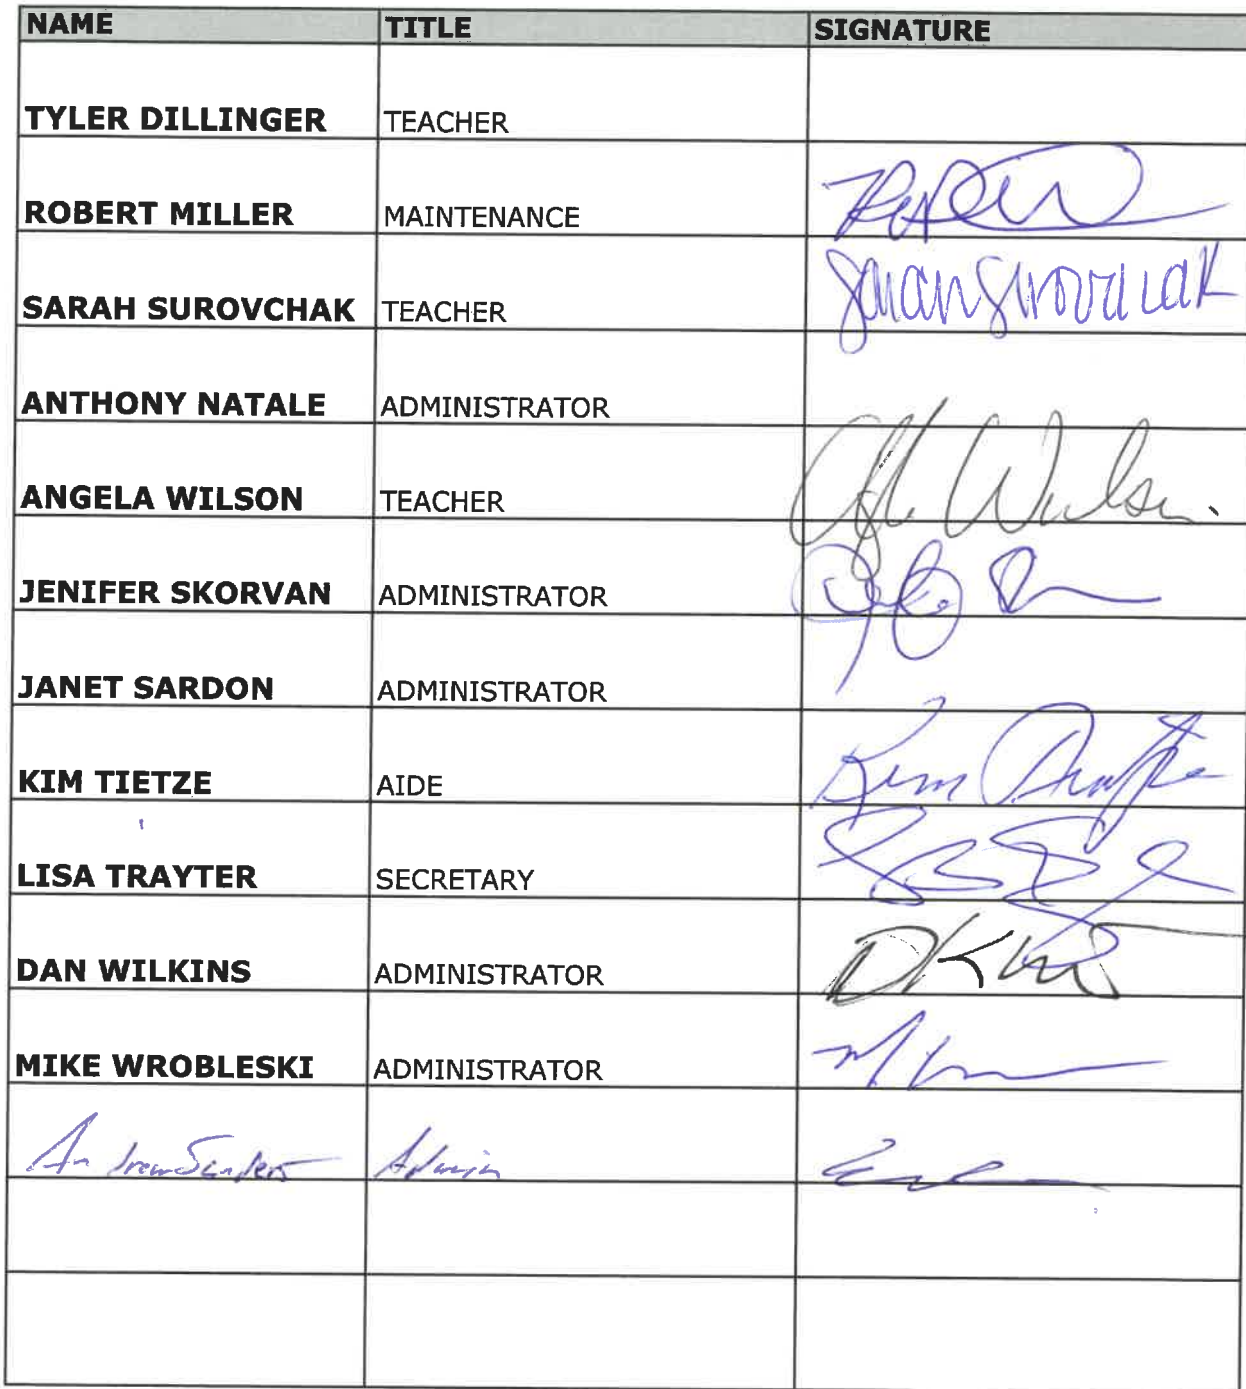 NAME TITLE SIGNATURE
TYLER DILLINGER TEACHER
ROBERT MILLER MAINTENANCE
SARAH SUROVCHAK TEACHER Sarah Surovchak
ANTHONY NATALE ADMINISTRATOR
ANGELA WILSON TEACHER Wilson
JENIFER SKORVAN ADMINISTRATOR
JANET SARDON ADMINISTRATOR
KIM TIETZE AIDE Kim
LISA TRAYTER SECRETARY
DAN WILKINS ADMINISTRATOR
MIKE WROBLESKI ADMINISTRATOR
Andrew Sanders Admin